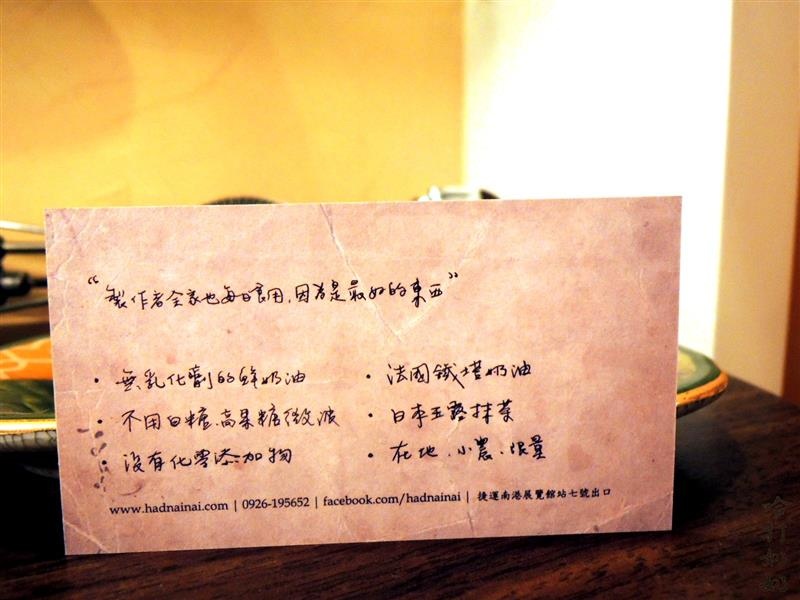 “製作者全家也每日食用，因為是最好的東西”
• 無乳化劑的鮮奶油
• 不用白糖、高果糖、微波
• 沒有化學添加物
• 法國鐵塔奶油
• 日本玉露抹茶
• 在地、小農、限量
www.hadnainai.com | 0926-195652 | facebook.com/hadnainai | 捷運南港展覽館站七號出口